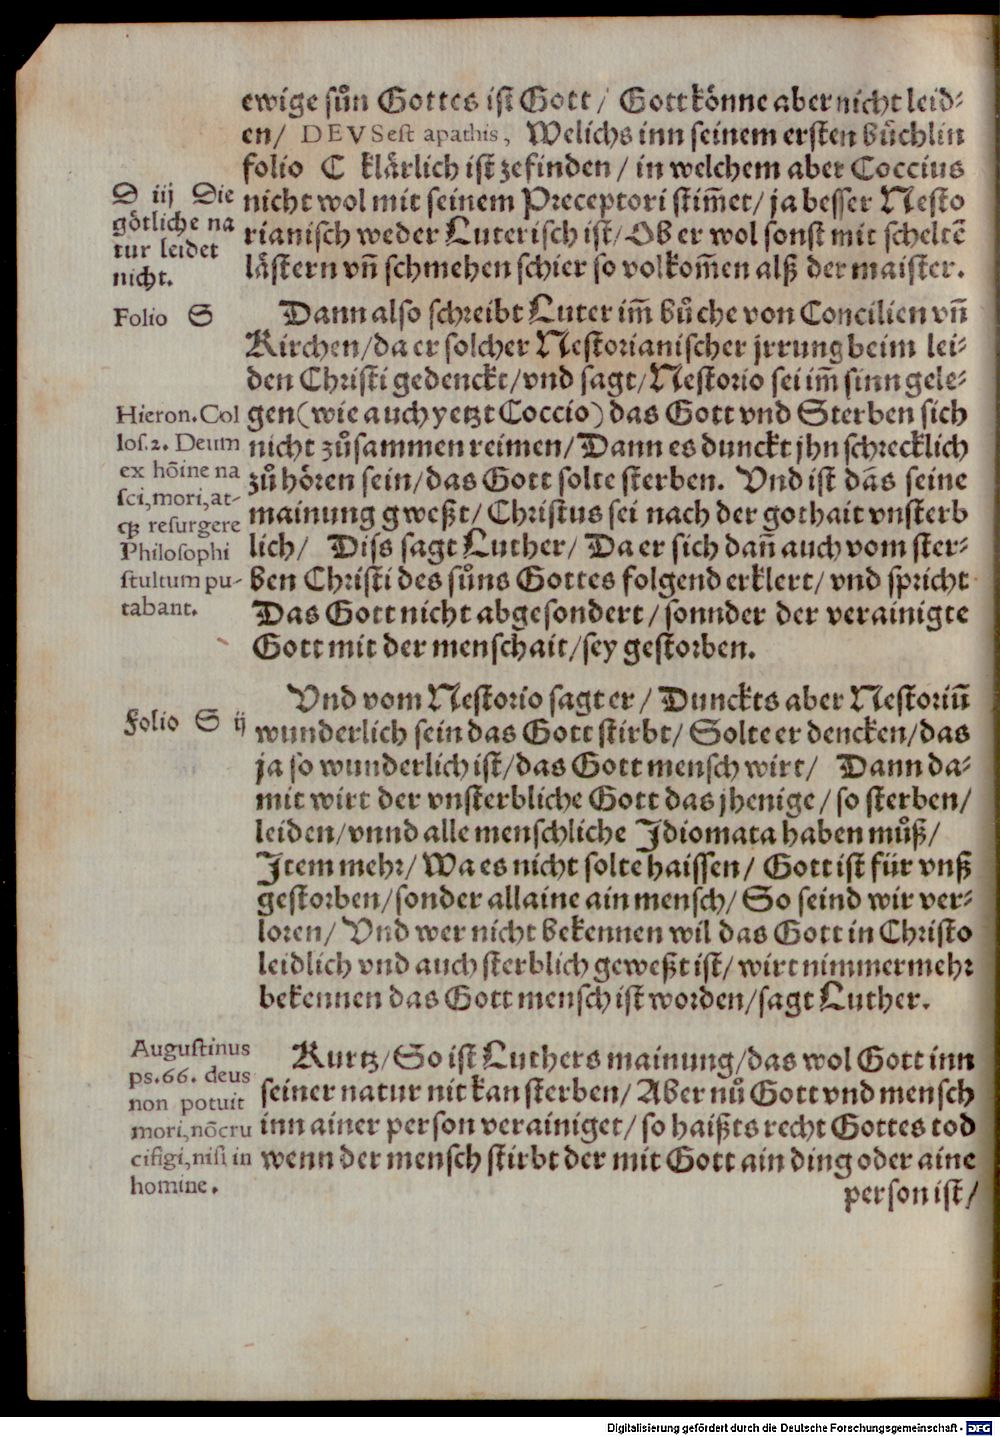 ewige sůn Gottes ist Gott / Gott könne aber nicht leid-
en / DEVS est apathis, Welichs inn seinem ersten bůchlin
folio C klärlich ist zefinden / in welchem aber Coccius
nicht wol mit seinem Preceptori stim̃et / ja besser Nesto
rianisch weder Luterisch ist / Ob er wol sonst mit scheltẽ
lästern vñ schmehen schier so volkom̃en alß der maister.
S iij Die
götliche na
tur leidet
nicht.
Dann also schreibt Luter im̃ bůche von Concilien vñ
Kirchen / da er solcher Nestorianischer jrrung beim lei-
den Christi gedenckt / vnd sagt / Nestorio sei im̃ sinn gele-
gen (wie auch yetzt Coccio) das Gott vnd Sterben sich
nicht zůsammen reimen / Dann es dunckt jhn schrecklich
zů hören sein / das Gott solte sterben. Vnd ist dãs seine
mainung gweßt / Christus sei nach der gothait vnsterb
lich / Diss sagt Luther / Da er sich dañ auch vom ster-
ben Christi des sůns Gottes folgend erklert / vnd spricht
Das Gott nicht abgesondert / sonnder der verainigte
Gott mit der menschait / sey gestorben.
Folio S
Hieron. Col
los. 2. Deum
ex hõine na
sci, mori, at-
cꝫ resurgere
Philosophi
stultum pu-
tabant.
Vnd vom Nestorio sagt er / Dunckts aber Nestoriũ
wunderlich sein das Gott stirbt / Solte er dencken / das
ja so wunderlich ist / das Gott mensch wirt / Dann da-
mit wirt der vnsterbliche Gott das jhenige / so sterben /
leiden / vnnd alle menschliche Idiomata haben můß /
Item mehr / Wa es nicht solte haissen / Gott ist für vnß
gestorben / sonder allaine ain mensch / So seind wir ver-
loren / Vnd wer nicht bekennen wil das Gott in Christo
leidlich vnd auch sterblich geweßt ist / wirt nimmermehr
bekennen das Gott mensch ist worden / sagt Luther.
Folio S ij
Kurtz / So ist Luthers mainung / das wol Gott inn
seiner natur nit kan sterben / Aber nů Gott vnd mensch
inn ainer person verainiget / so haißts recht Gottes tod
wenn der mensch stirbt der mit Gott ain ding oder aine
person ist /
Augustinus
ps. 66. deus
non potuit
mori, nõ cru
cifigi, nisi in
homine.
Digitalisierung gefördert durch die Deutsche Forschungsgemeinschaft - DFG